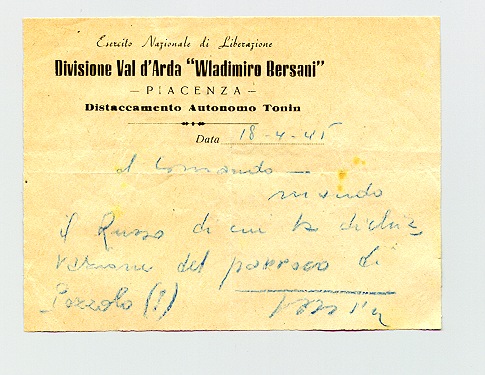 Esercito Nazionale di Liberazione
Divisione Val d'Arda "Wladimiro Bersani"
— PIACENZA —
Distaccamento Autonomo Tonin
Data 18-4-45
al Comando —
mando
il Russo di cui la dichia
razione del parroco di
Pozzolo (?)